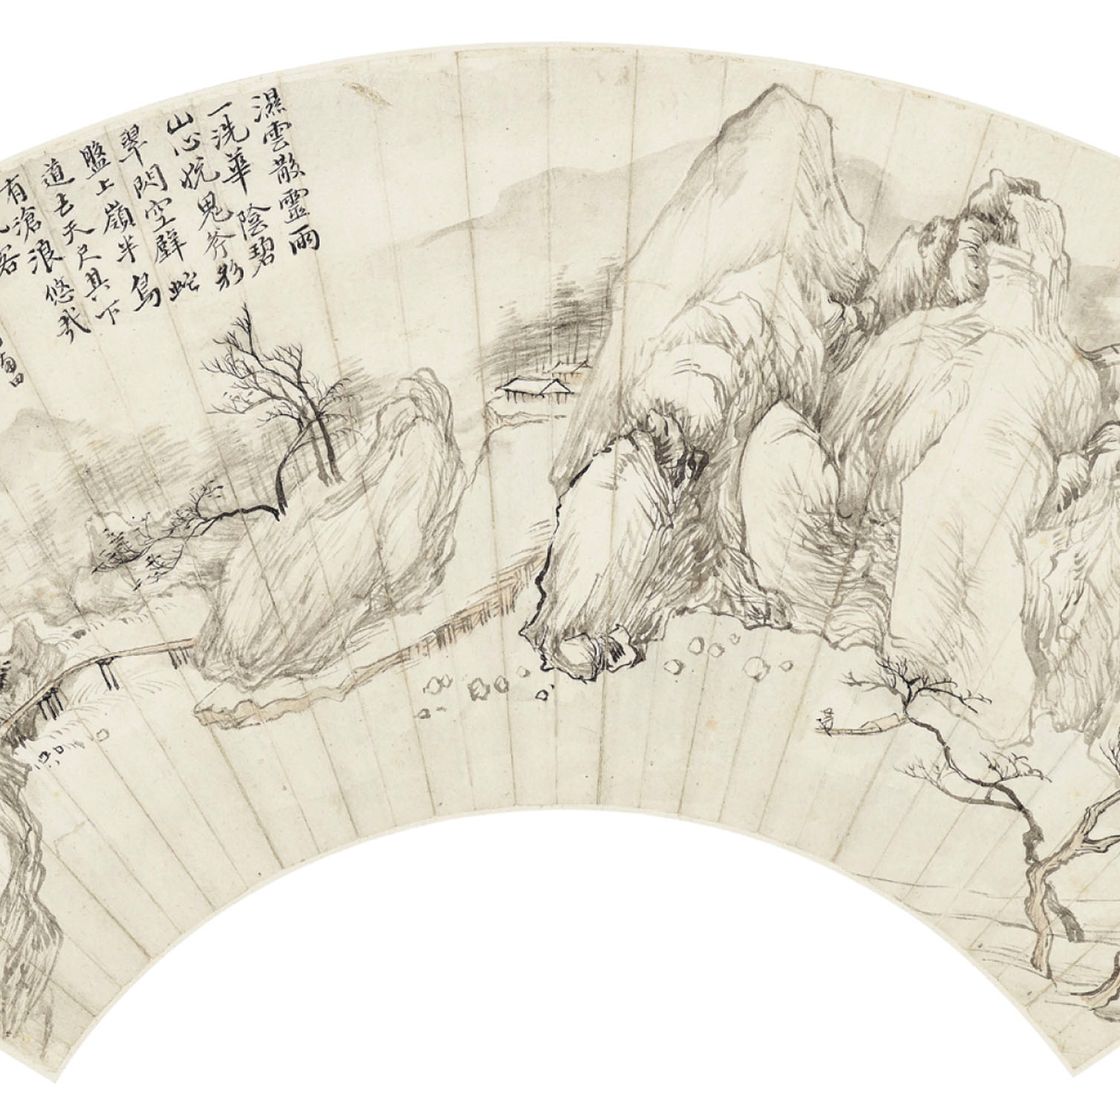 濕雲散靈雨
一洗華陰碧
山心恍鬼斧彩
翠閃空壁蛇
盤上嶺半鳥
道去天尺其下
有滄浪悠哉
客